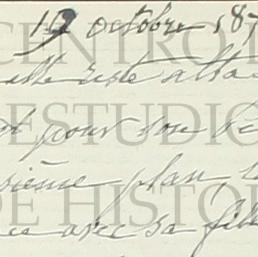 19 octobre 187
reste atta
pour son
sième plan, le
avec sa fille
CENTRO
ESTUDIO
DE HISTO